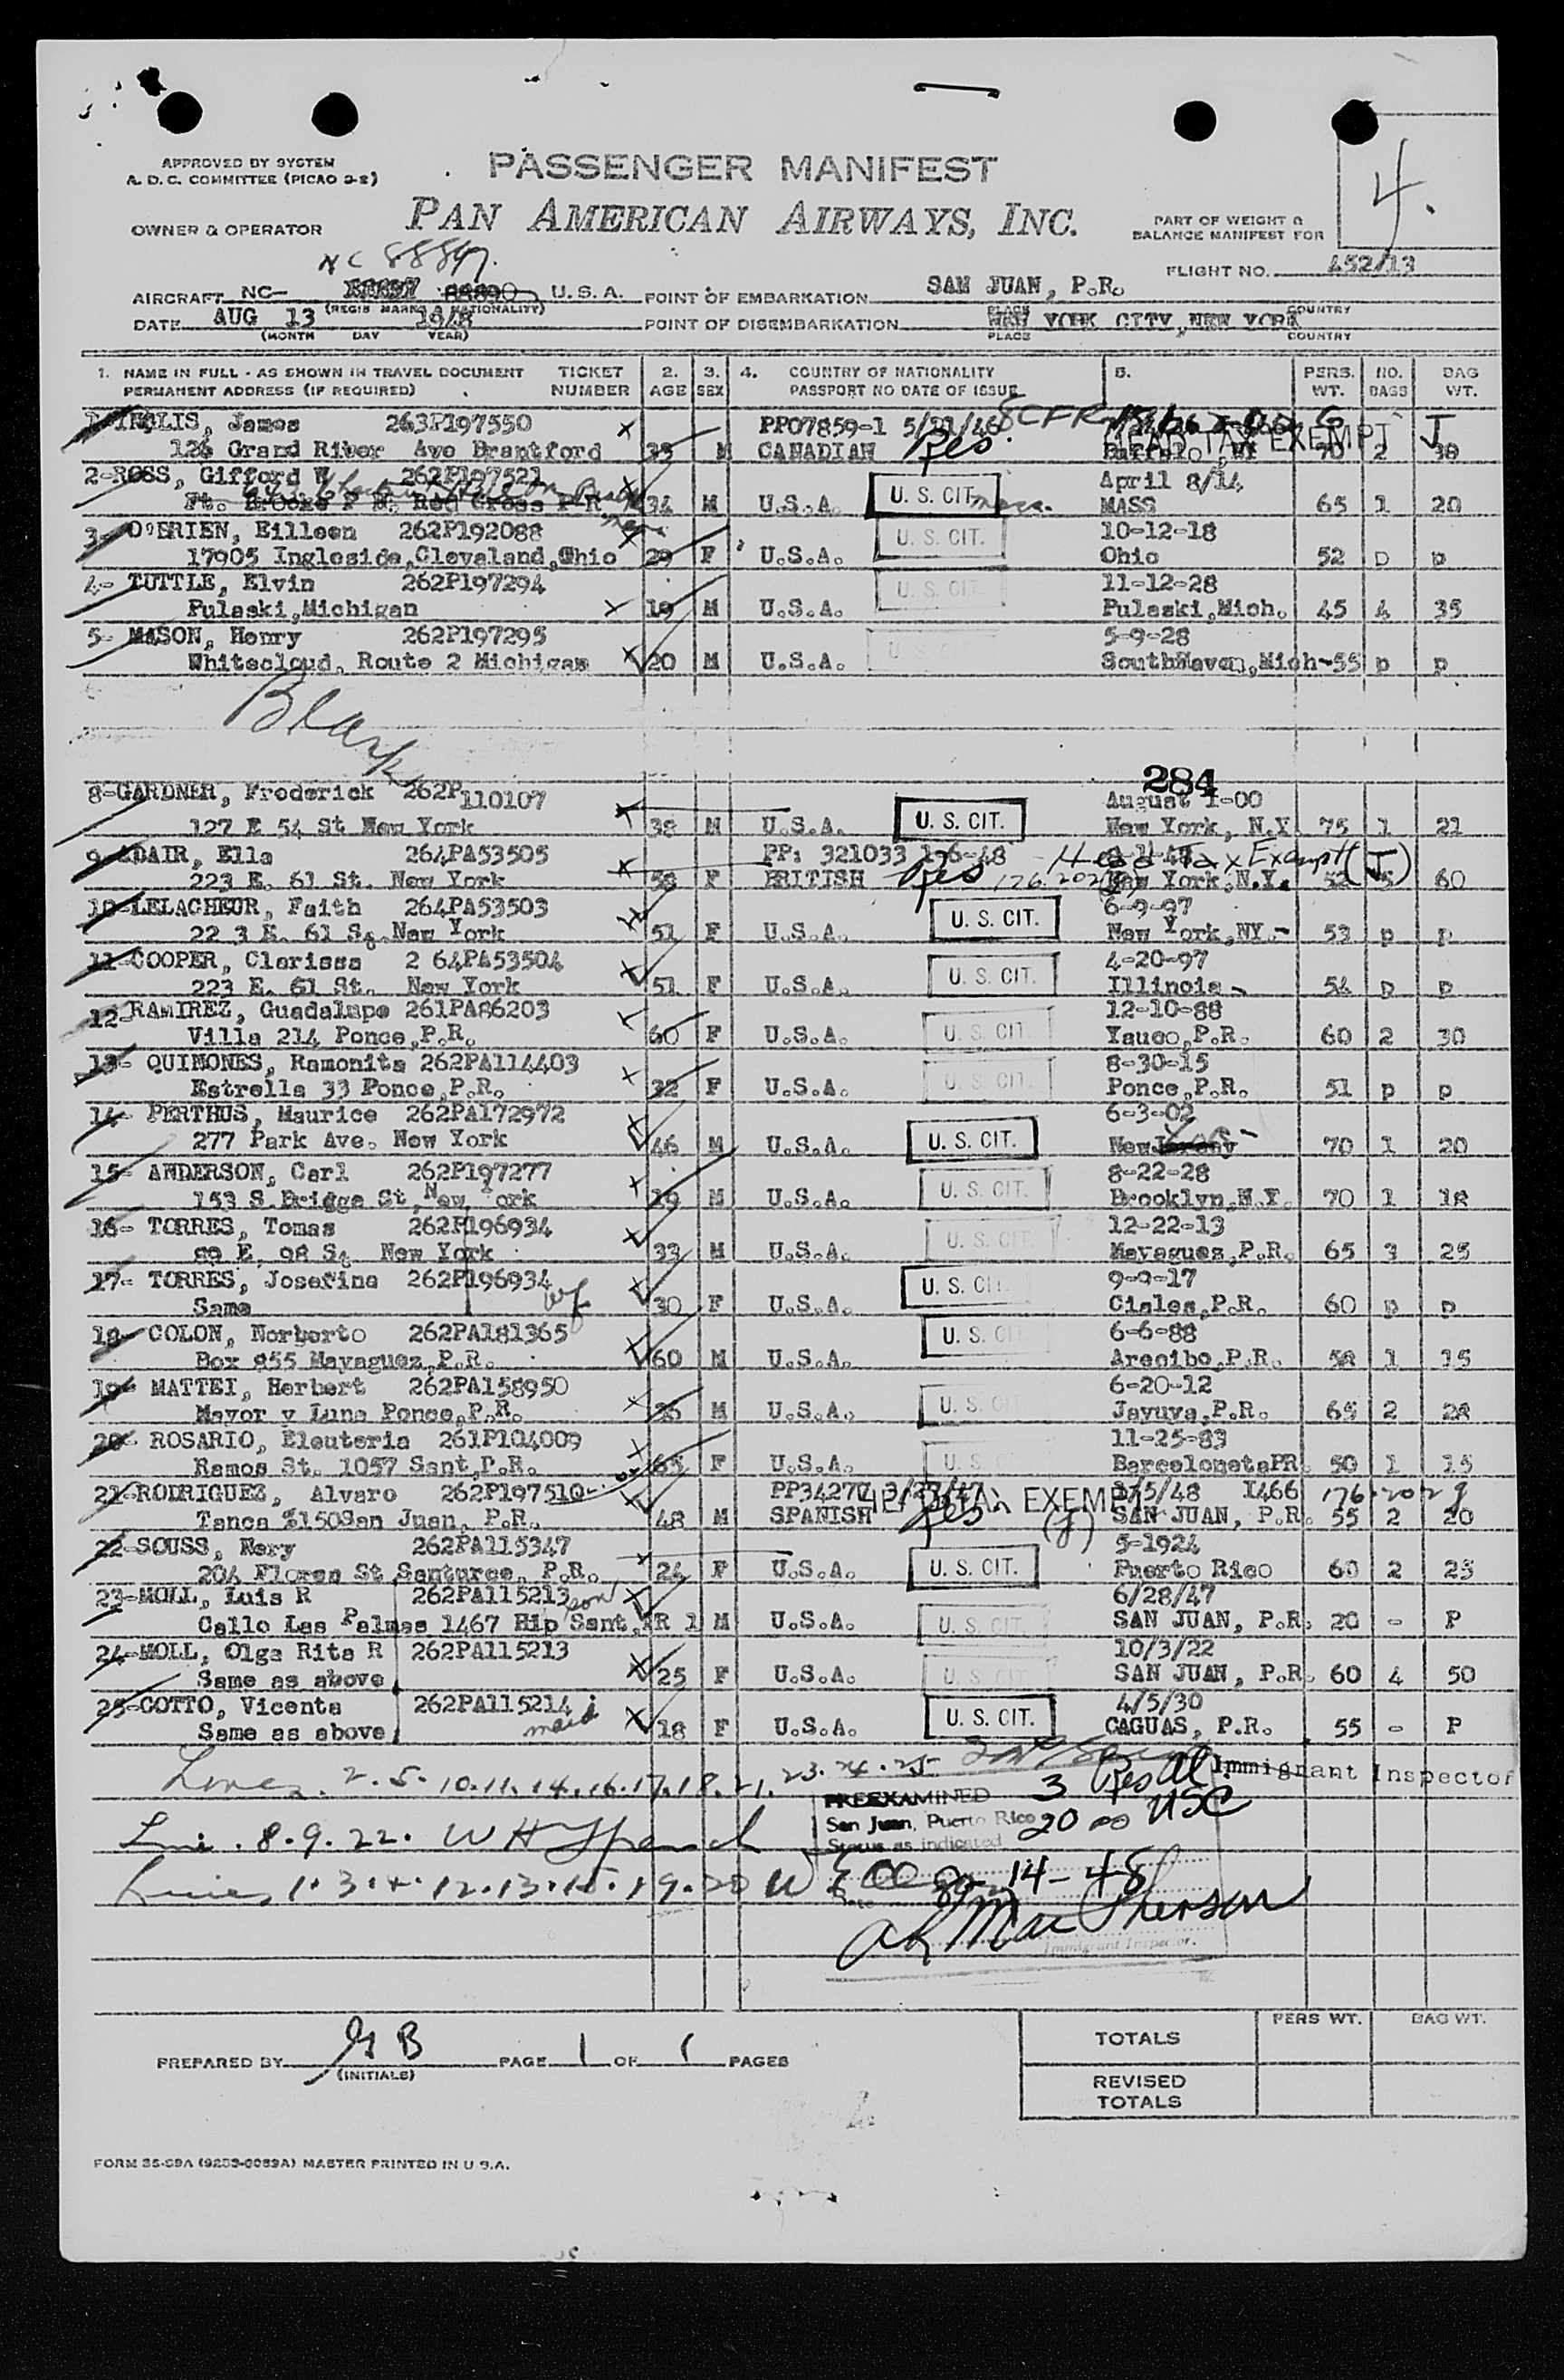 4.
APPROVED BY SYSTEM
A. D. C. COMMITTEE (PICAO 2-8)
PASSENGER MANIFEST
OWNER & OPERATOR
PAN AMERICAN AIRWAYS, INC.
PART OF WEIGHT &
BALANCE MANIFEST FOR
NC 88847.
FLIGHT NO. 452/13
AIRCRAFT NC- U. S. A. POINT OF EMBARKATION SAN JUAN, P.R.
(REGIS MARK & NATIONALITY) PLACE COUNTRY
DATE AUG 13 1948 POINT OF DISEMBARKATION NEW YORK CITY, NEW YORK
(MONTH DAY YEAR) PLACE COUNTRY
1. NAME IN FULL - AS SHOWN IN TRAVEL DOCUMENT TICKET 2. 3. 4. COUNTRY OF NATIONALITY 5. PERS. NO. BAG
PERMANENT ADDRESS (IF REQUIRED) NUMBER AGE SEX PASSPORT NO DATE OF ISSUE WT. BAGS WT.
INGLIS, James 263P197550 PP07859-1 5/21/46 8CFR
126 Grand River Ave Brantford 35 M CANADIAN Res. HEAD TAX EXEMPT J Buffalo, NY 70 2 30
2-ROSS, Gifford W 262P197521 April 8/14
Ft. Brooke P R. Red Cross P R 34 M U.S.A. U. S. CIT. MASS 65 1 20
3- O'BRIEN, Eilleen 262P192088 10-12-18
17905 Ingleside,Cleveland,Ohio 29 F U.S.A. U. S. CIT. Ohio 52 p p
4- TUTTLE, Elvin 262P197294 11-12-28
Pulaski,Michigan 19 M U.S.A. U. S. CIT. Pulaski,Mich. 45 4 35
5- MASON, Henry 262P197295 5-9-28
Whitecloud, Route 2 Michigan 20 M U.S.A. SouthHaven,Mich-55 p p
Blank
284
8-GARDNER, Frederick 262P110107 August 1-00
127 E 54 St New York 38 M U.S.A. U. S. CIT. New York, N.Y 75 1 21
9-ADAIR, Ella 264PA53505 PP: 321033 1-6-48 Head Tax Exempt (J)
223 E. 61 St. New York 58 F BRITISH Res 176.202 New York,N.Y. 52 5 60
10-LELACHEUR, Faith 264PA53503 6-9-97
22 3 E. 61 St. New York 51 F U.S.A. U. S. CIT. New York,NY.- 53 p p
11-COOPER, Clarissa 2 64PA53504 4-20-97
223 E. 61 St. New York 51 F U.S.A. U. S. CIT. Illinois- 54 p p
12-RAMIREZ, Guadalupe 261PA86203 12-10-88
Villa 214 Ponce,P.R. 60 F U.S.A. U. S. CIT. Yauco,P.R. 60 2 30
13- QUINONES, Ramonita 262PA114403 8-30-15
Estrella 33 Ponce,P.R. 32 F U.S.A. U. S. CIT. Ponce,P.R. 51 p p
14- PERTHUS, Maurice 262PA172972 6-3-02
277 Park Ave. New York 46 M U.S.A. U. S. CIT. New 70 1 20
15- ANDERSON, Carl 262P197277 8-22-28
153 S.Brigge St, New York 19 M U.S.A. U. S. CIT. Brooklyn,N.Y. 70 1 18
16- TORRES, Tomas 262P196934 12-22-13
89 E 98 St New York 33 M U.S.A. U. S. CIT. Mayaguez,P.R. 65 3 25
17- TORRES, Josefina 262P196934 wf 9-9-17
Same 30 F U.S.A. U. S. CIT. Ciales,P.R. 60 p p
18- COLON, Norberto 262PA181365 6-6-88
Box 855 Mayaguez,P.R. 60 M U.S.A. U. S. CIT Arecibo,P.R. 58 1 15
19- MATTEI, Herbert 262PA158950 6-20-12
Mayor y Luna Ponce,P.R. 36 M U.S.A. U. S. CIT Jayuya,P.R. 65 2 28
20- ROSARIO, Eleuteria 261P104009 11-25-83
Ramos St. 1057 Sant,P.R. 65 F U.S.A. U. S. C BarcelonetaPR. 50 1 15
21-RODRIGUEZ, Alvaro 262P197510 PP34277 3/27/47 HEAD TAX EXEMPT 3/5/48 I466 176.202 g
Tanca #150San Juan, P.R. 48 M SPANISH Res (J) SAN JUAN, P.R. 55 2 20
22-SOUSS, Nery 262PA115347 5-1924
204 Flores St,Santurce, P.R. 24 F U.S.A. U. S. CIT. Puerto Rico 60 2 23
23-MOLL, Luis R 262PA115213 son 6/28/47
Calle Las Palmas 1467 Hip Sant,PR 1 M U.S.A. U. S. CIT. SAN JUAN, P.R. 20 - P
24-MOLL, Olga Rita R 262PA115213 10/3/22
Same as above 25 F U.S.A. U. S. CIT SAN JUAN, P.R 60 4 50
25-COTTO, Vicenta 262PA115214 maid 4/5/30
Same as above 18 F U.S.A. U. S. CIT. CAGUAS, P.R. 55 - P
Lines. 2.5.10.11.14.16.17.18.21.23.24.25 Immigrant Inspector
PREEXAMINED 3 Res al
San Juan, Puerto Rico 20 USC
Status as indicated
Line. 8.9.22.
Lines 1.3.4.12.13.15.19.20
Date 14-48
MacPherson
Immigrant Inspector.
PREPARED BY GB PAGE 1 OF 1 PAGES
(INITIALS)
PERS WT. BAG WT.
TOTALS
REVISED
TOTALS
FORM 35-39A (9253-0083A) MASTER PRINTED IN U S.A.